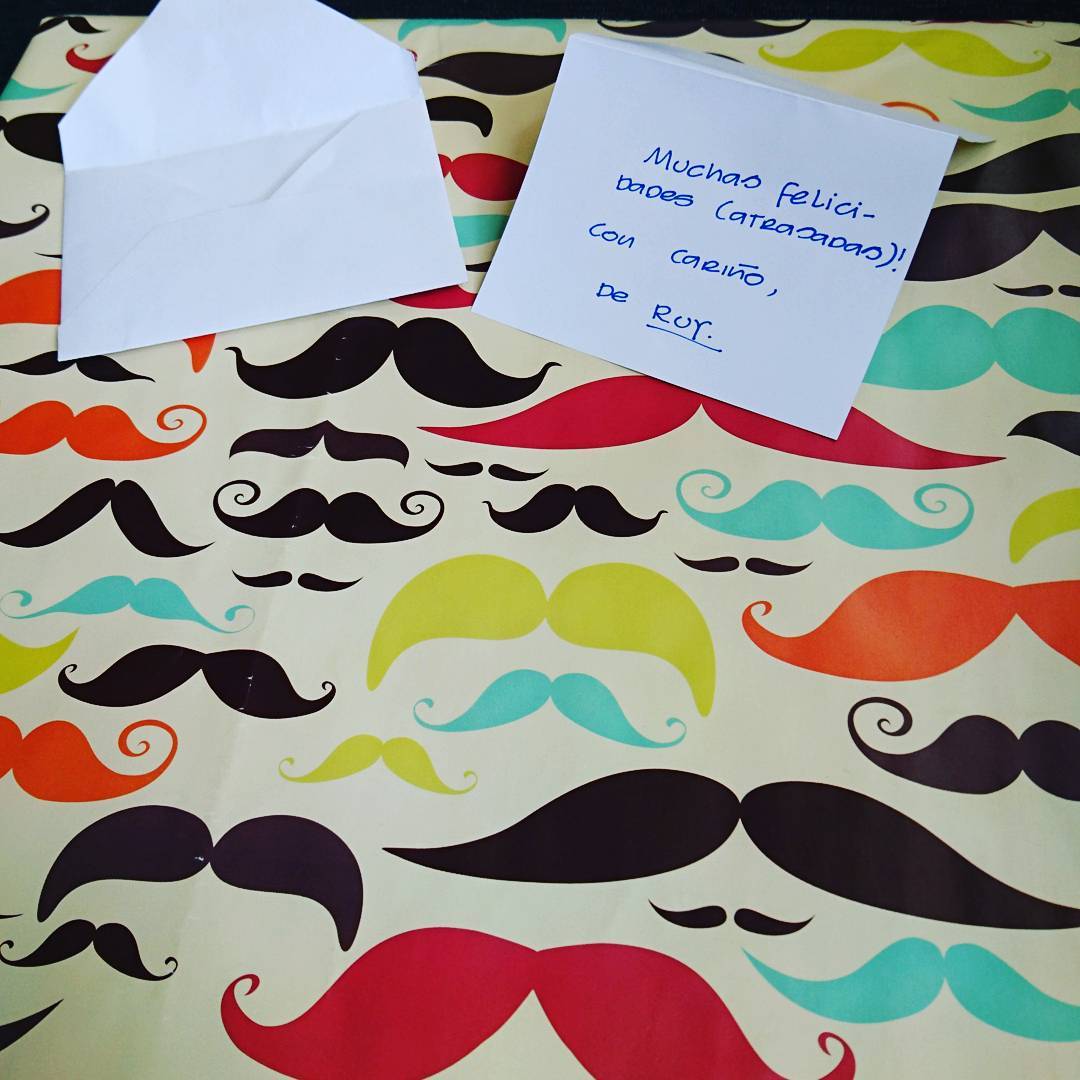 Muchas felici-
dades (atrasadas)!
con cariño,
de Ruy.